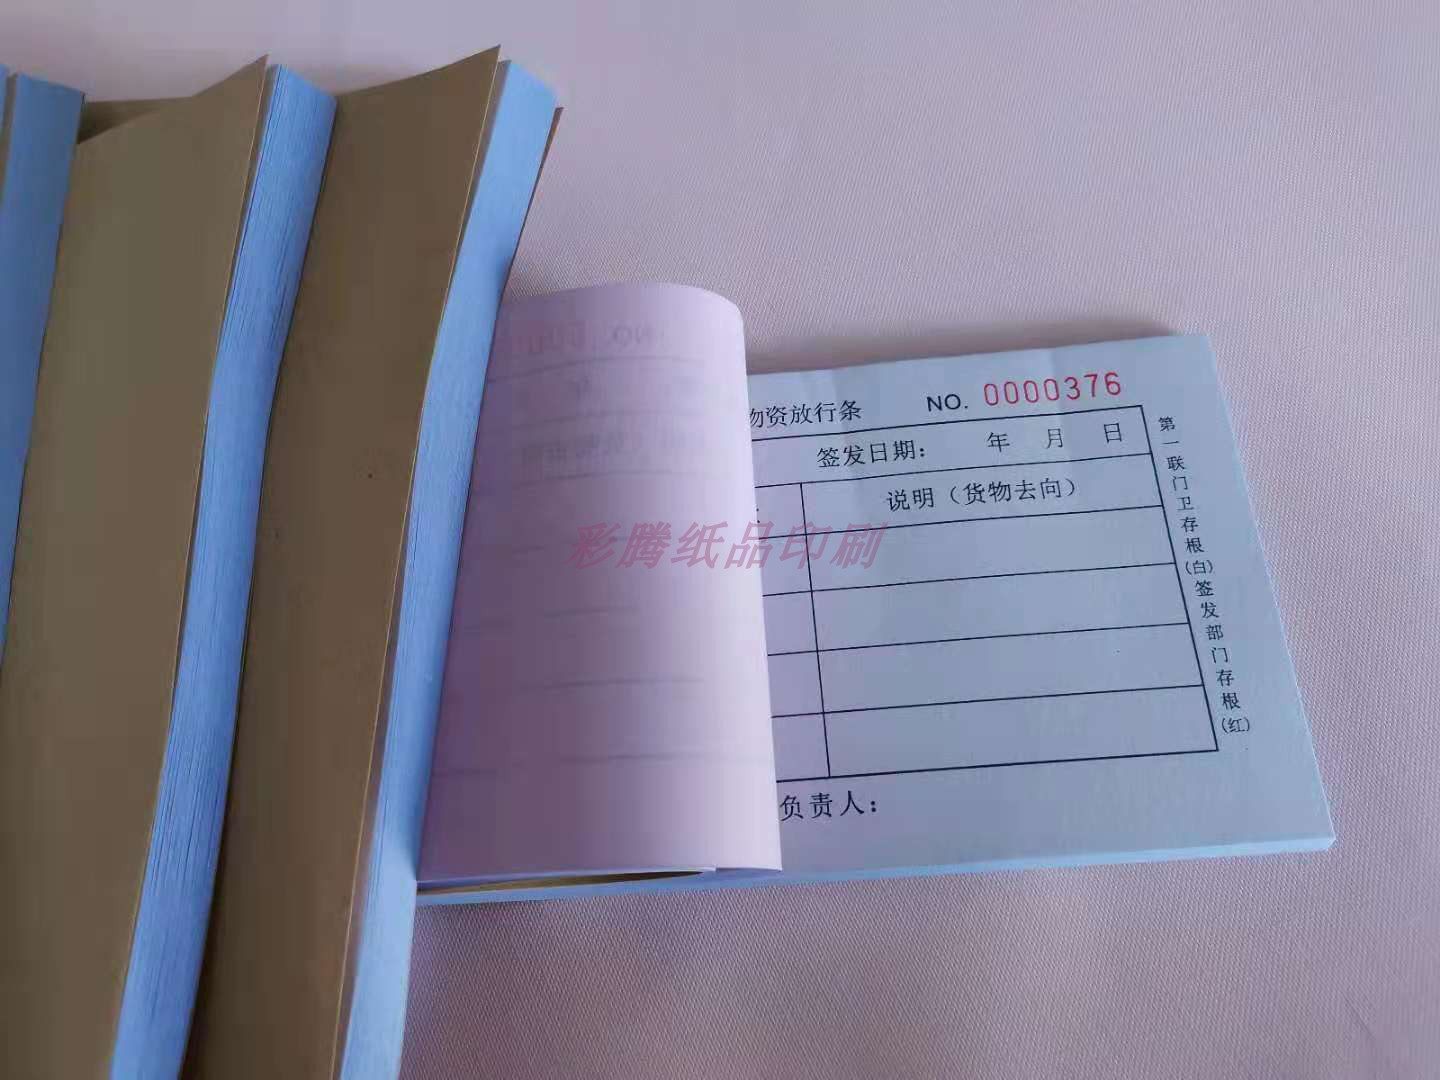 物资放行条 NO. 0000376
签发日期： 年 月 日
说明（货物去向）
负责人：
第一联门卫存根(白)签发部门存根(红)
彩腾纸品印刷